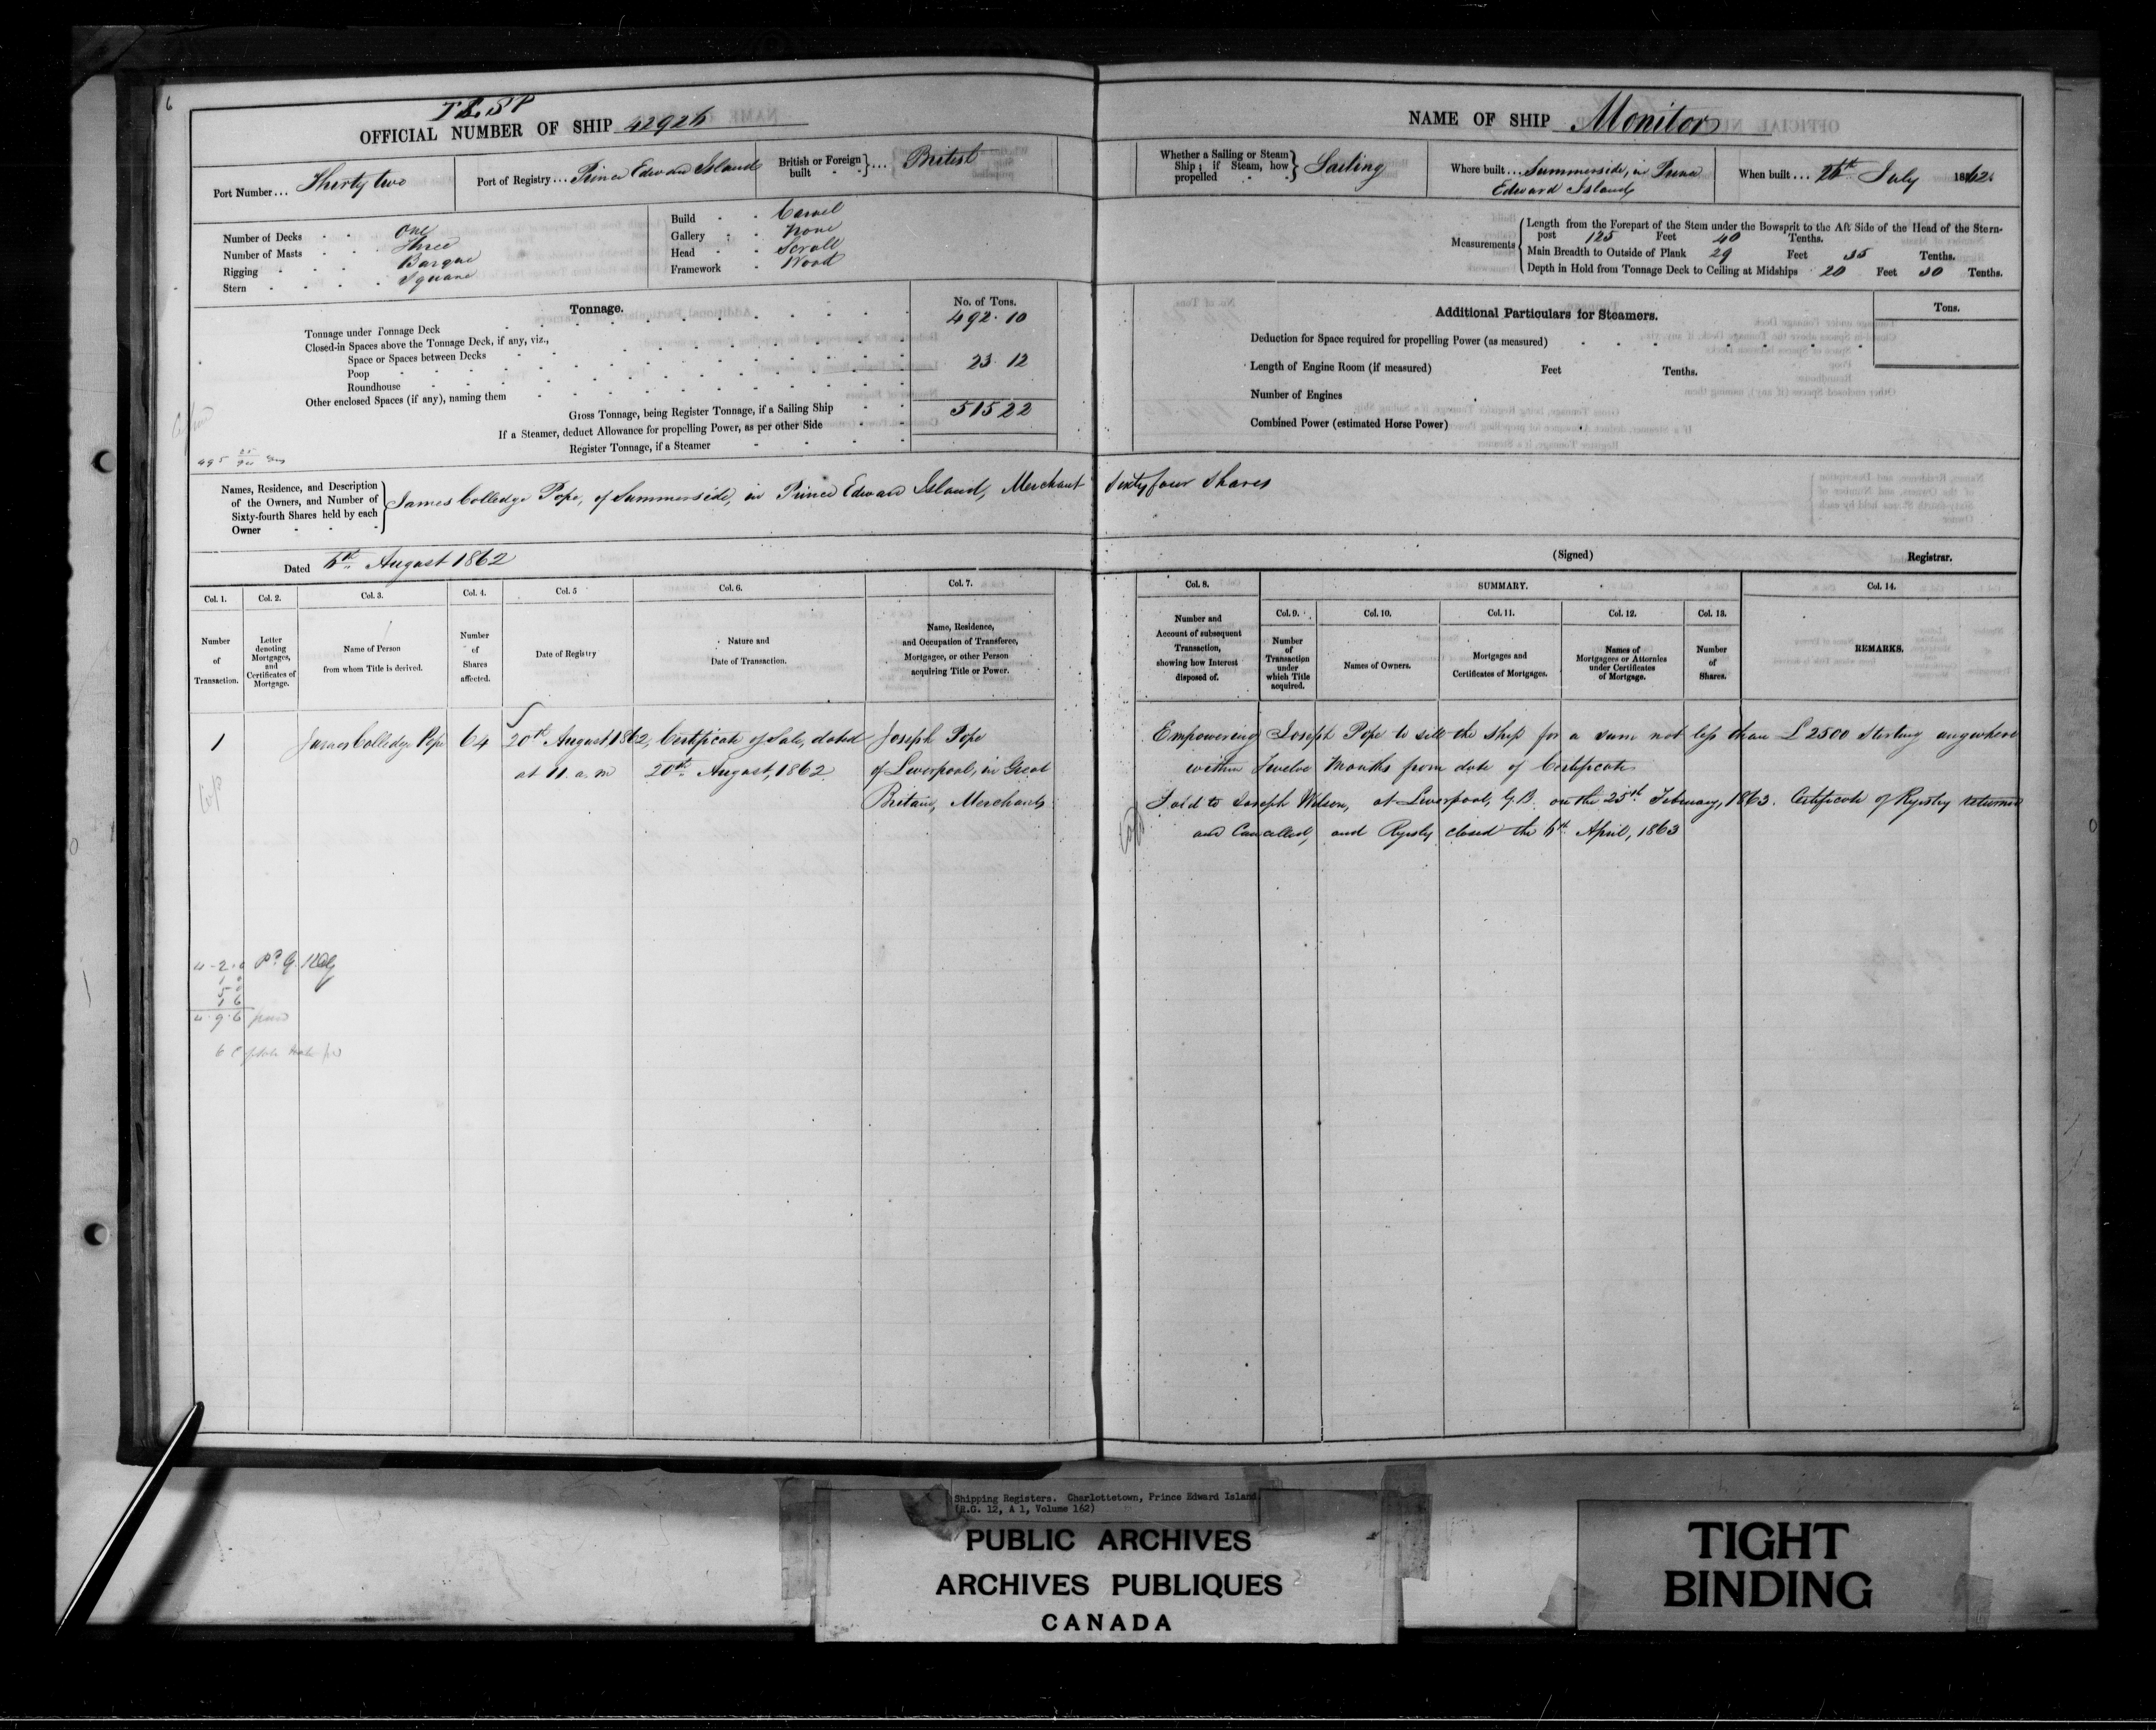 6
OFFICIAL NUMBER OF SHIP 42926
Port Number... Thirty two
Port of Registry... Prince Edward Island
British or Foreign built } ... British
Number of Decks One
Number of Masts Three
Rigging Barque
Stern Square
Build Carvel
Gallery None
Head Scroll
Framework Wood
Tonnage. No. of Tons.
Tonnage under Tonnage Deck 492.10
Closed-in Spaces above the Tonnage Deck, if any, viz.,
Space or Spaces between Decks
Poop 23 12
Roundhouse
Other enclosed Spaces (if any), naming them
Gross Tonnage, being Register Tonnage, if a Sailing Ship 515 22
If a Steamer, deduct Allowance for propelling Power, as per other Side
Register Tonnage, if a Steamer
Names, Residence, and Description
of the Owners, and Number of
Sixty-fourth Shares held by each
Owner
James Colledge Pope, of Summerside, in Prince Edward Island, Merchant Sixty four Shares
Dated 6th August 1862
NAME OF SHIP Monitor
Whether a Sailing or Steam
Ship; if Steam, how
propelled } Sailing
Where built... Summerside, in Prince
Edward Island
When built... 26th July 1862.
Measurements
Length from the Forepart of the Stem under the Bowsprit to the Aft Side of the Head of the Stern-
post 125 Feet 40 Tenths.
Main Breadth to Outside of Plank 29 Feet 35 Tenths.
Depth in Hold from Tonnage Deck to Ceiling at Midships 20 Feet 30 Tenths.
Additional Particulars for Steamers. Tons.
Deduction for Space required for propelling Power (as measured)
Length of Engine Room (if measured) Feet Tenths.
Number of Engines
Combined Power (estimated Horse Power)
(Signed) Registrar.
Col. 1. Col. 2. Col. 3. Col. 4. Col. 5 Col. 6. Col. 7.
Number of Transaction.
Letter denoting Mortgages, and Certificates of Mortgage.
Name of Person from whom Title is derived.
Number of Shares affected.
Date of Registry
Nature and Date of Transaction.
Name, Residence, and Occupation of Transferee, Mortgagee, or other Person acquiring Title or Power.
Col. 8. SUMMARY. Col. 14.
Col. 9. Col. 10. Col. 11. Col. 12. Col. 13.
Number and Account of subsequent Transaction, showing how Interest disposed of.
Number of Transaction under which Title acquired.
Names of Owners.
Mortgages and Certificates of Mortgages.
Names of Mortgagees or Attornies under Certificates of Mortgage.
Number of Shares.
REMARKS.
1 James Colledge Pope 64 20th August 1862, Certificate of Sale, dated Joseph Pope
at 11 a.m 20th August, 1862 of Liverpool, in Great
Britain, Merchant
Empowering Joseph Pope to sell the Ship for a sum not less than £2500 Sterling anywhere
within Twelve Months from date of Certificate
Sold to Joseph Wilson, at Liverpool, G.B. on the 25th February, 1863. Certificate of Registry returned
and Cancelled, and Registry closed the 6th April, 1863
4.9.6
Shipping Registers. Charlottetown, Prince Edward Island
(R.G. 12, A 1, Volume 162)
PUBLIC ARCHIVES
ARCHIVES PUBLIQUES
CANADA
TIGHT
BINDING